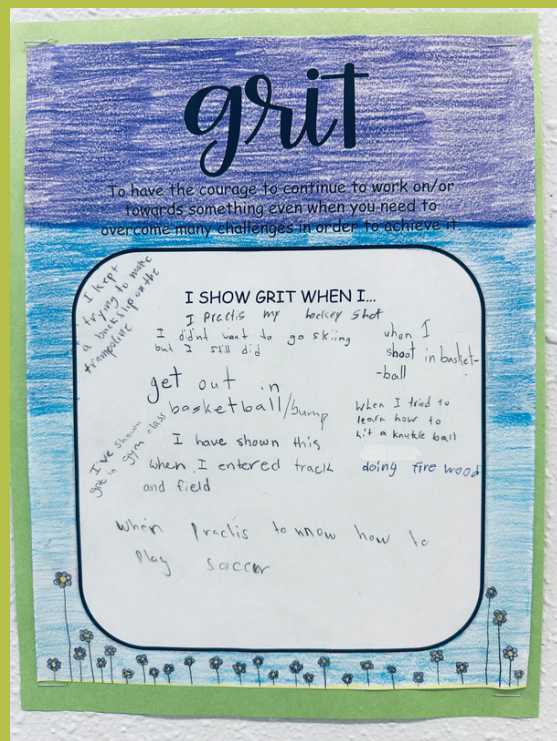 grit
To have the courage to continue to work on/or
towards something even when you need to
overcome many challenges in order to achieve it.
I SHOW GRIT WHEN I...
I kept
trying to make
a backflip on the
trampoline
I Practis my hockey shot
I didnt want to go skiing
but I still did
when I
shoot in basket-
-ball
get out in
basketball/bump
When I tried to
learn how to
hit a knukle ball
I've shown
grit in gym class
I have shown this
when I entered track
and field
doing fire wood
when Practis to know how to
Play soccer